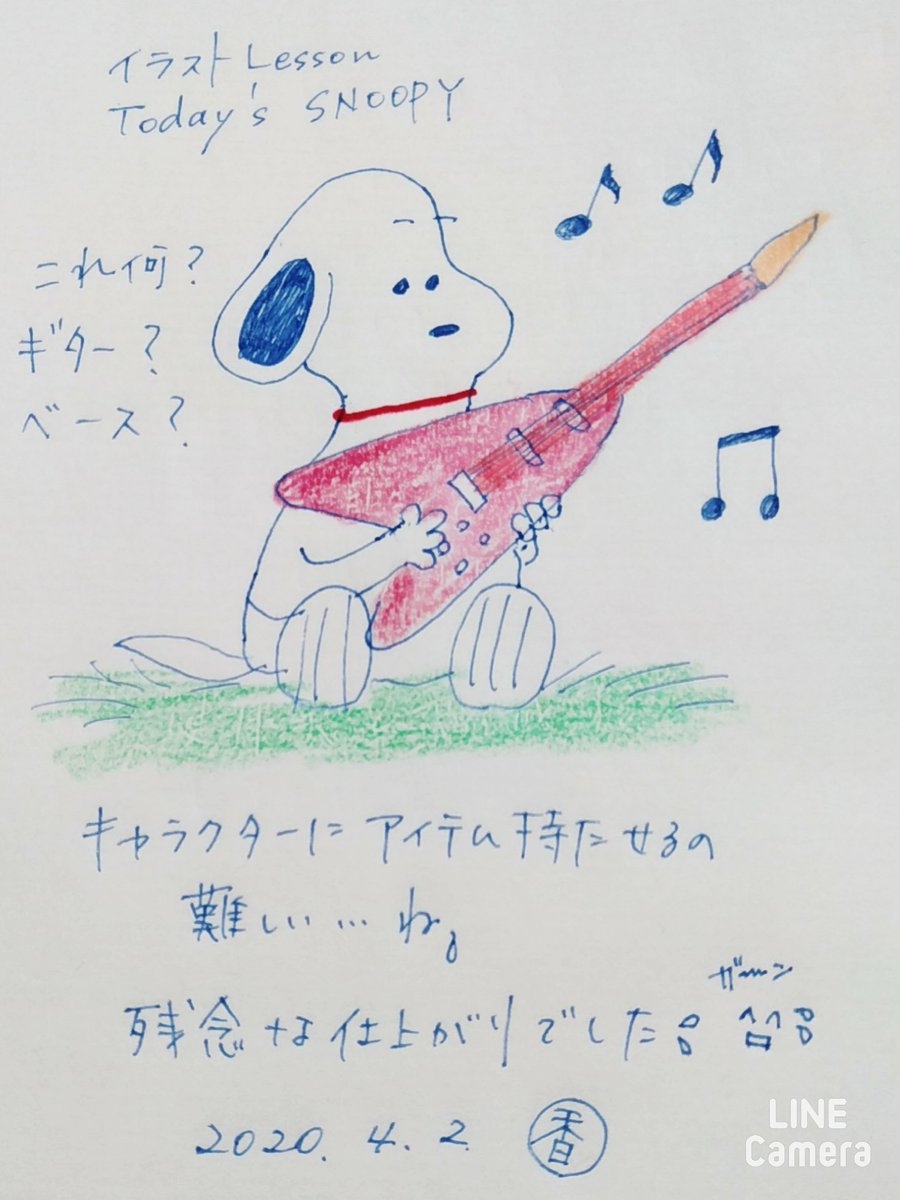 イラスト Lesson
Today's SNOOPY
これ何?
ギター?
ベース?
キャラクターにアイテム持たせるの
難しい…ね。
ガーン
残念な仕上がりでした
2020. 4. 2 香
LINE
Camera